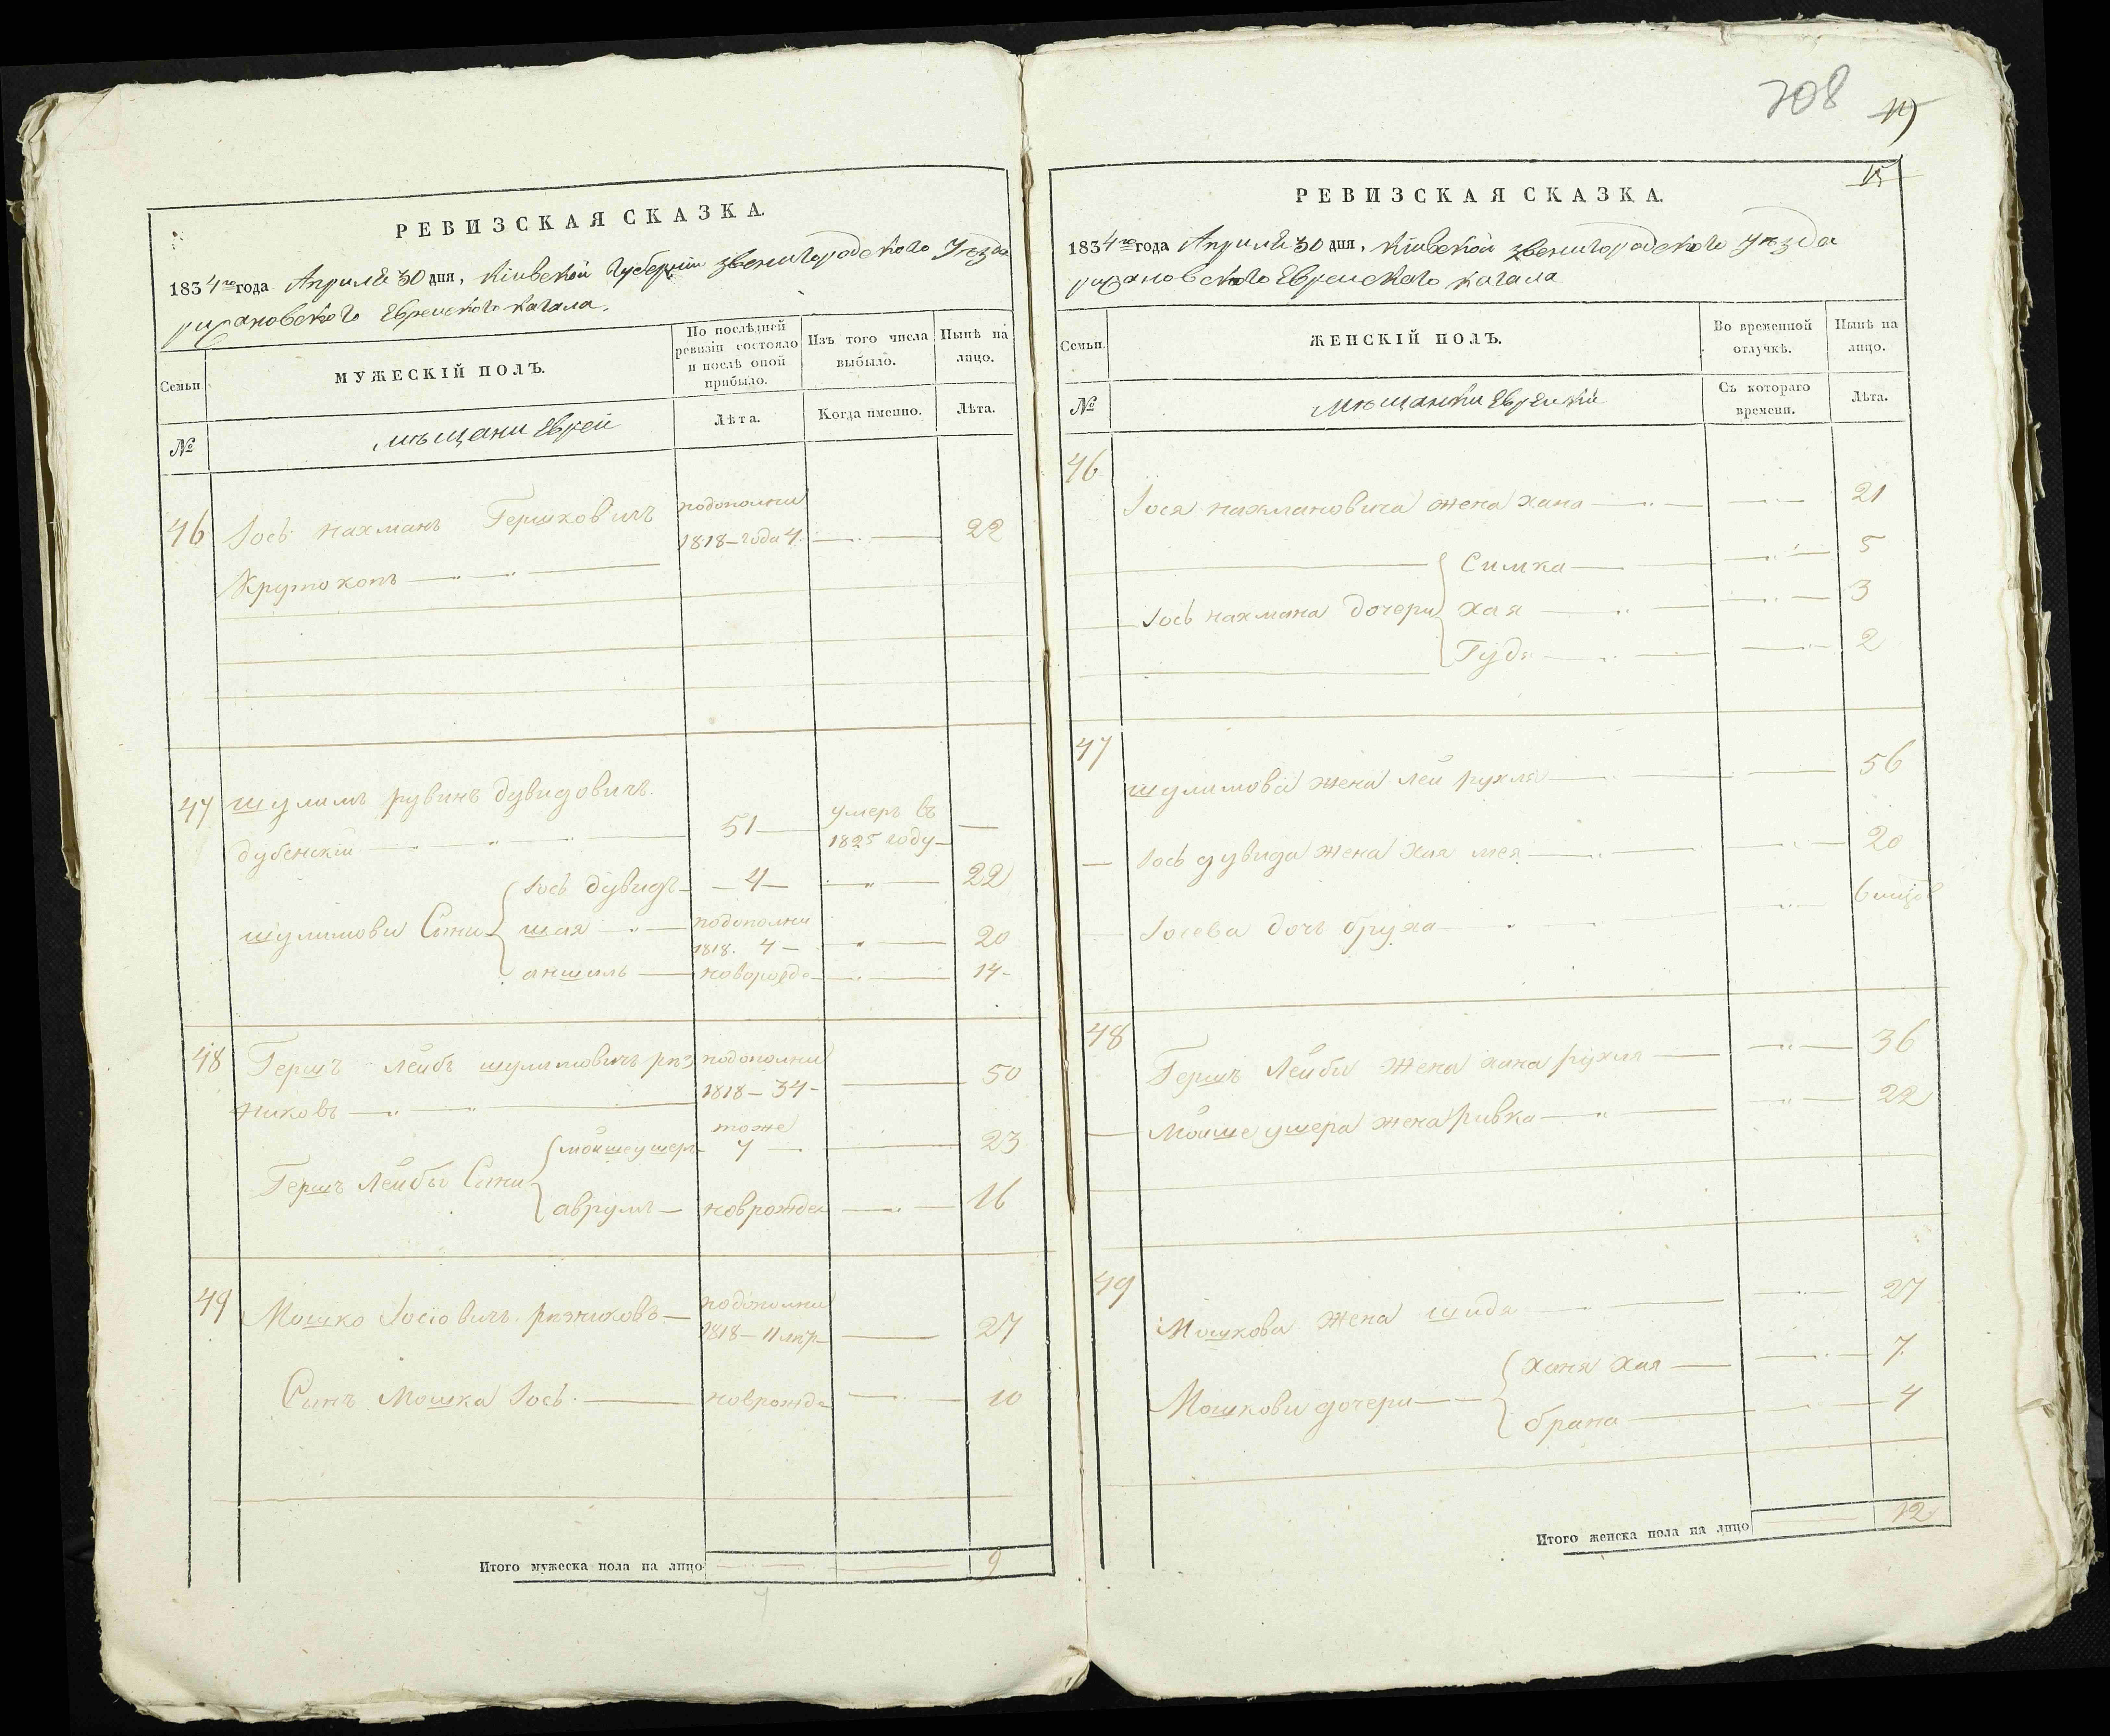 708
15
РЕВИЗСКАЯ СКАЗКА.
1834го года Априля 30 дня, Кіивской Губерніи Звенигородского Уезда
ризановского Еврейского Кагала.
Семьи
МУЖЕСКІЙ ПОЛЪ.
По послѣдней ревизіи состояло и послѣ оной прибыло.
Изъ того числа выбыло.
Нынѣ на лицо.
№
мѣщани Еврей
Лѣта.
Когда именно.
Лѣта.
46 Іось нахманъ Гершковичъ подополни
1818-года 4. 22
Крутоконъ
47 шулимъ рувинъ дувидовичъ.
дубенскій 51 умеръ въ 1825 году
Іось дувидъ 4 22
шулимови Сини шая подополни 1818. 4 20
аншиль новорожде 14
48 Гершъ лейбъ шулимовичъ рез подополни
никовъ 1818-34 50
мойшеушеръ тоже 7 23
Гершъ Лейбы Сини
аврумъ новрожден 16
49 Мошко Іосіовичъ резниковъ подополни
1818-11 27
Синъ Мошка Іось новрожде 10
Итого мужеска пола на лицо 9
РЕВИЗСКАЯ СКАЗКА.
1834го года Априля 30 дня, Кіивской Звенигородского Уезда
ризановского Еврейского Кагала
Семьи.
ЖЕНСКІЙ ПОЛЪ.
Во временной отлучкѣ.
Нынѣ на лицо.
№
мѣщанки Еврейки
Съ котораго времени.
Лѣта.
46
Іося нахмановича жена хана 21
Симка 5
Іось нахмана дочери хая 3
Гудя 2
47
шулимова жена лея рухля 56
Іось дувида жена хая 20
Іосева дочь бруха 6
48
Гершъ Лейби жена хана рухля 36
Мойше ушера жена ривка 22
49
Мошкова жена шидя 27
ханя хая 7
Мошкови дочери
брана 4
Итого женска пола на лицо 12